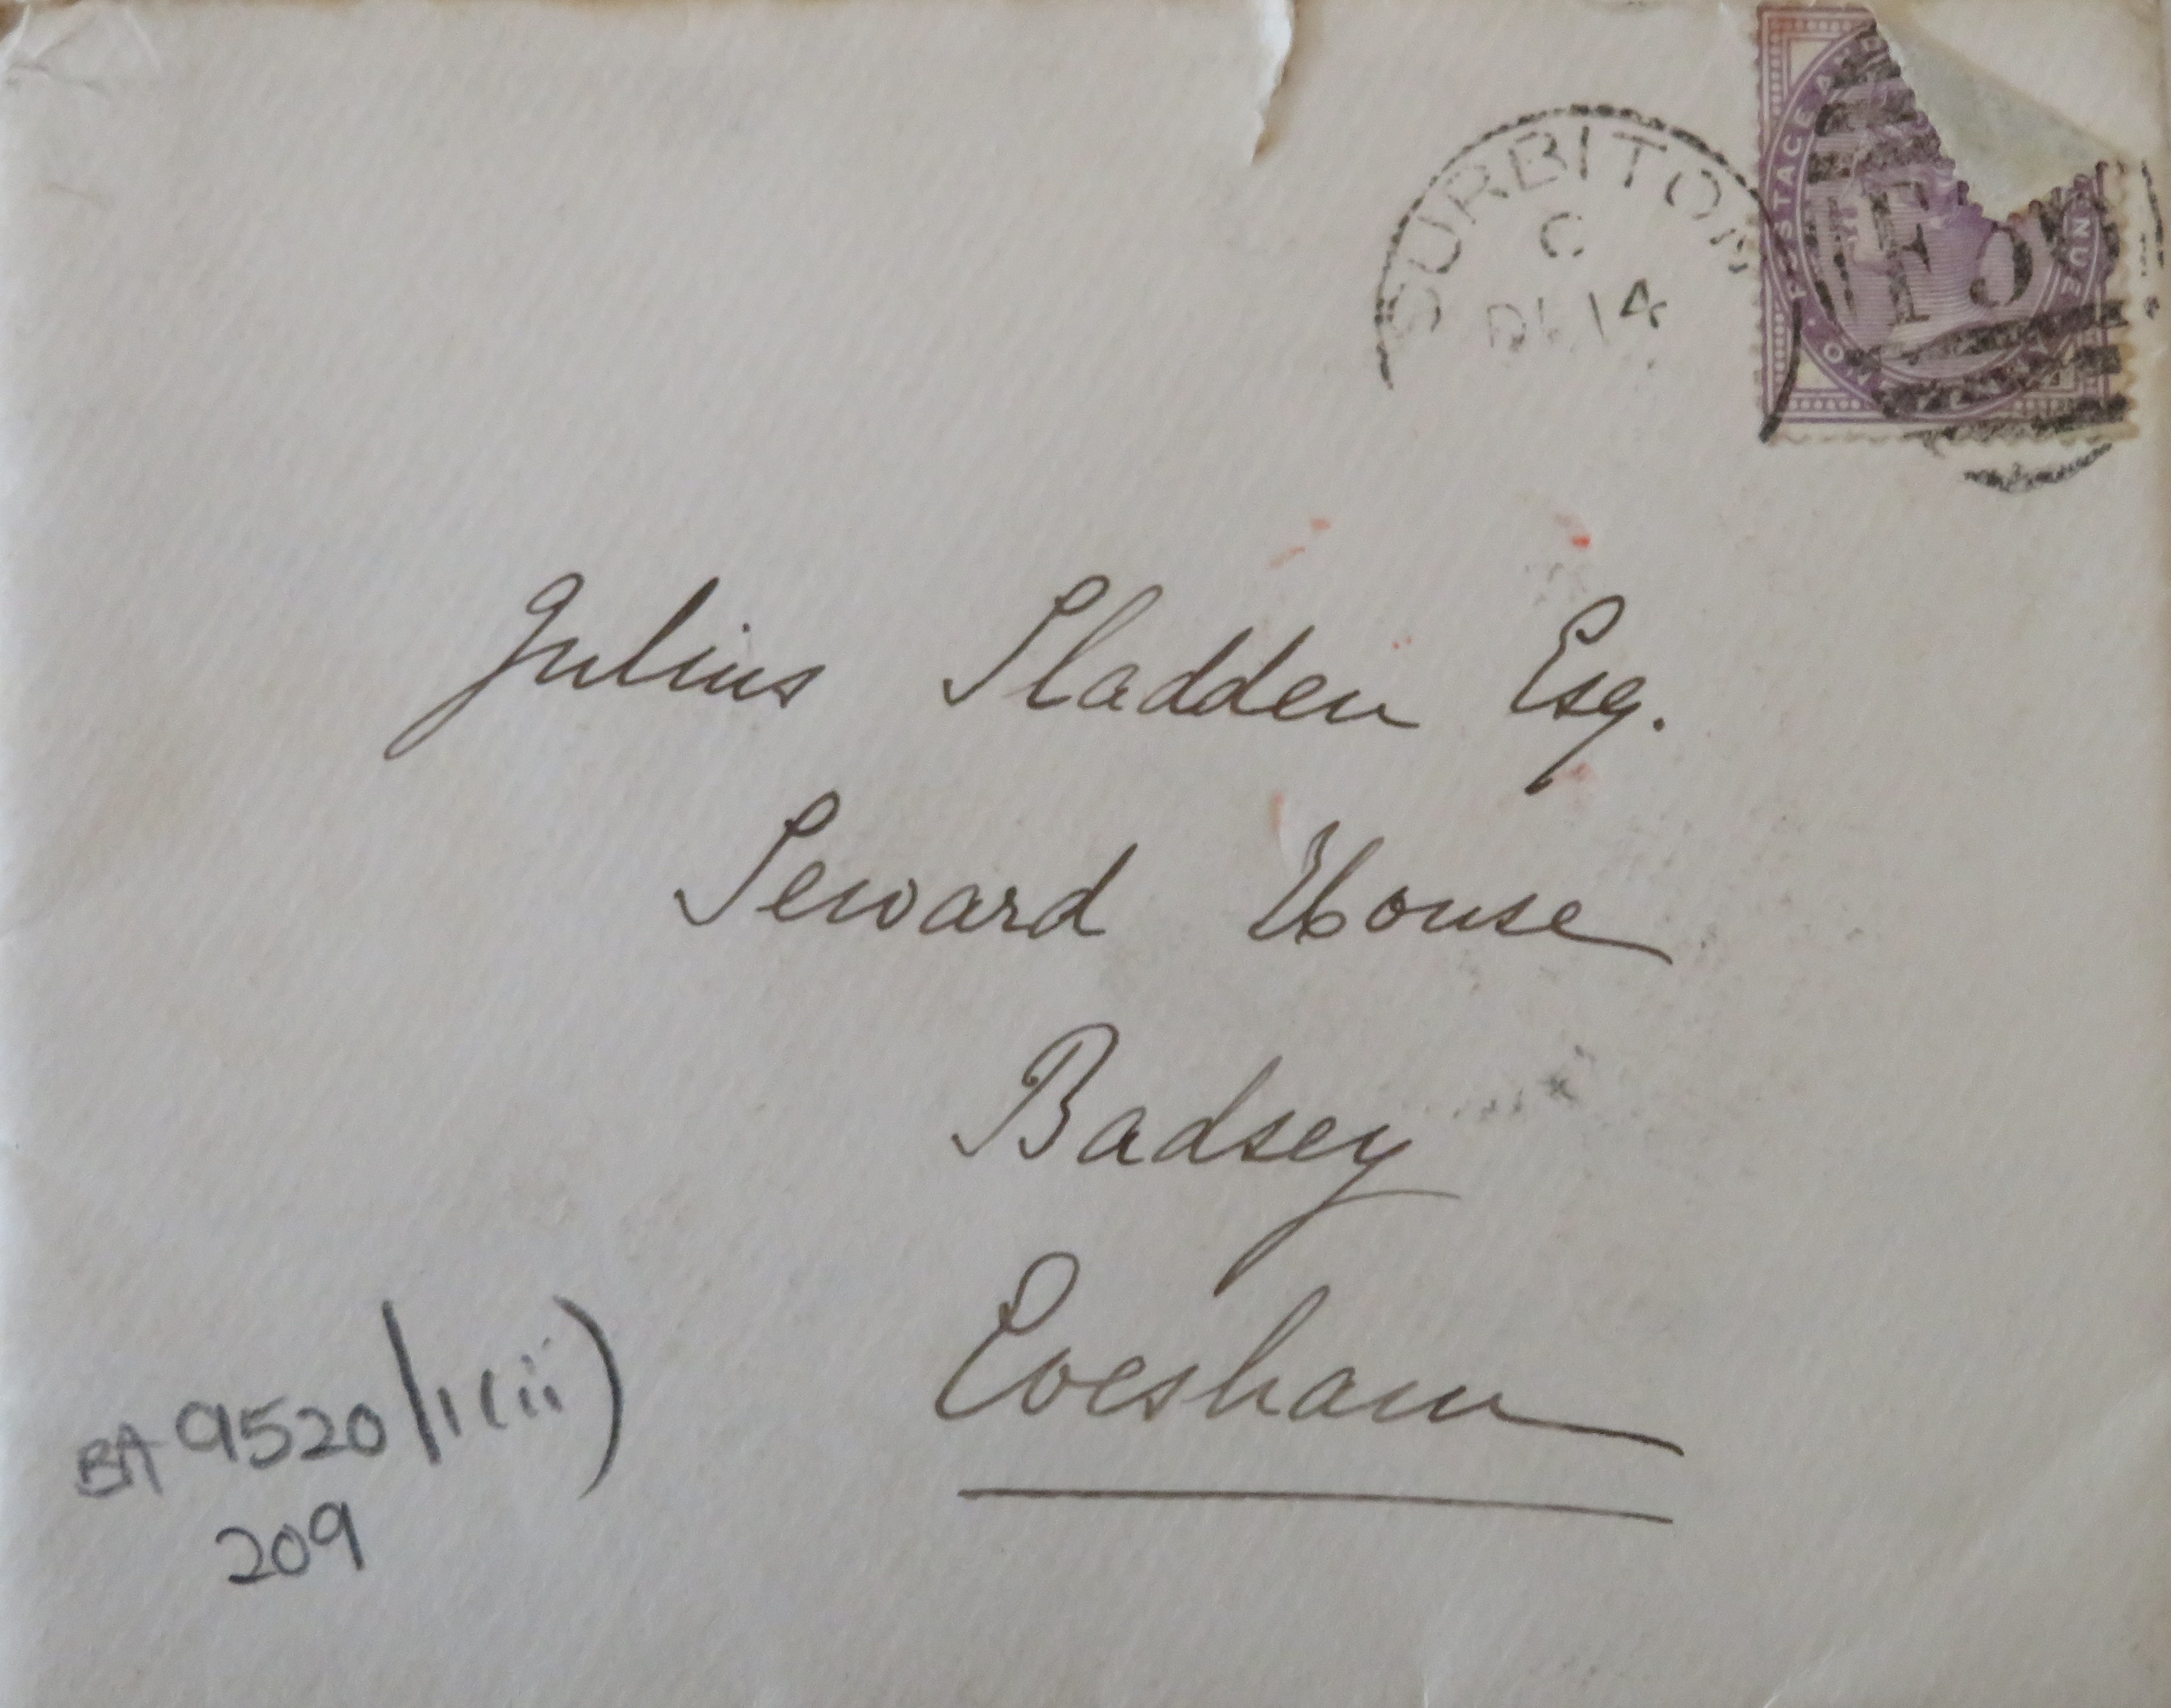 SURBITON
C
14
POSTAGE
F5
Julius Sladden Esq.
Seward House
Badsey
Evesham
BA 9520/1(iii)
209